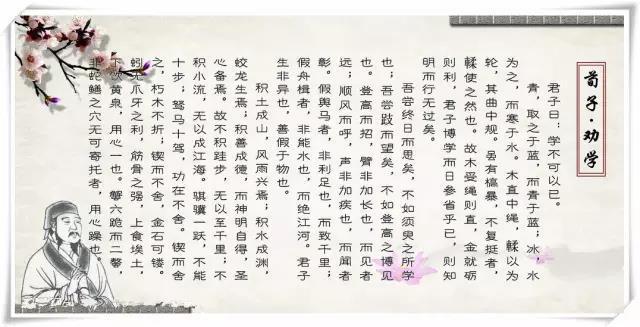 荀子·劝学
君子曰：学不可以已。
青，取之于蓝，而青于蓝；冰，水
为之，而寒于水。木直中绳，輮以为
轮，其曲中规。虽有槁暴，不复挺者，
輮使之然也。故木受绳则直，金就砺
则利，君子博学而日参省乎己，则知
明而行无过矣。
吾尝终日而思矣，不如须臾之所学
也；吾尝跂而望矣，不如登高之博见
也。登高而招，臂非加长也，而见者
远；顺风而呼，声非加疾也，而闻者
彰。假舆马者，非利足也，而致千里；
假舟楫者，非能水也，而绝江河。君子
生非异也，善假于物也。
积土成山，风雨兴焉；积水成渊，
蛟龙生焉；积善成德，而神明自得，圣
心备焉。故不积跬步，无以至千里；不
积小流，无以成江海。骐骥一跃，不能
十步；驽马十驾，功在不舍。锲而舍
之，朽木不折；锲而不舍，金石可镂。
蚓无爪牙之利，筋骨之强，上食埃土，
下饮黄泉，用心一也。蟹六跪而二螯，
非蛇鳝之穴无可寄托者，用心躁也。